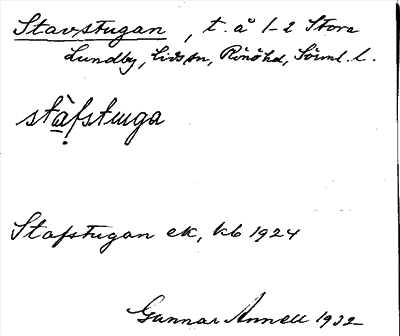 Stavstugan, t. å 1-2 Stora
Lundby, Lids sn, Rönö hd, Sörml. l.
stàfstuga
Stafstugan ek, kb 1924
Gunnar Annell 1932